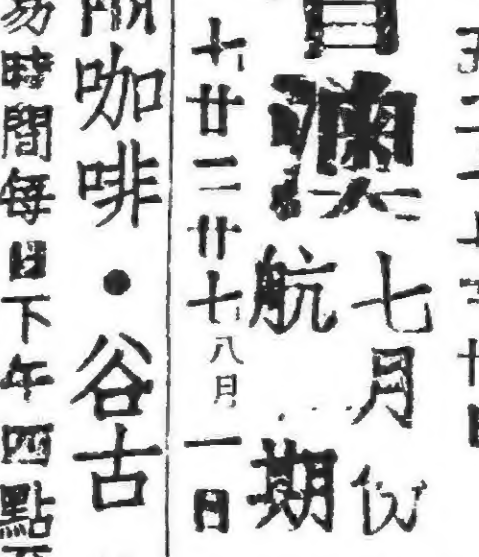 澳
七月份
航期
七廿二廿七八月一日
咖啡・谷古
時間每日下午四點